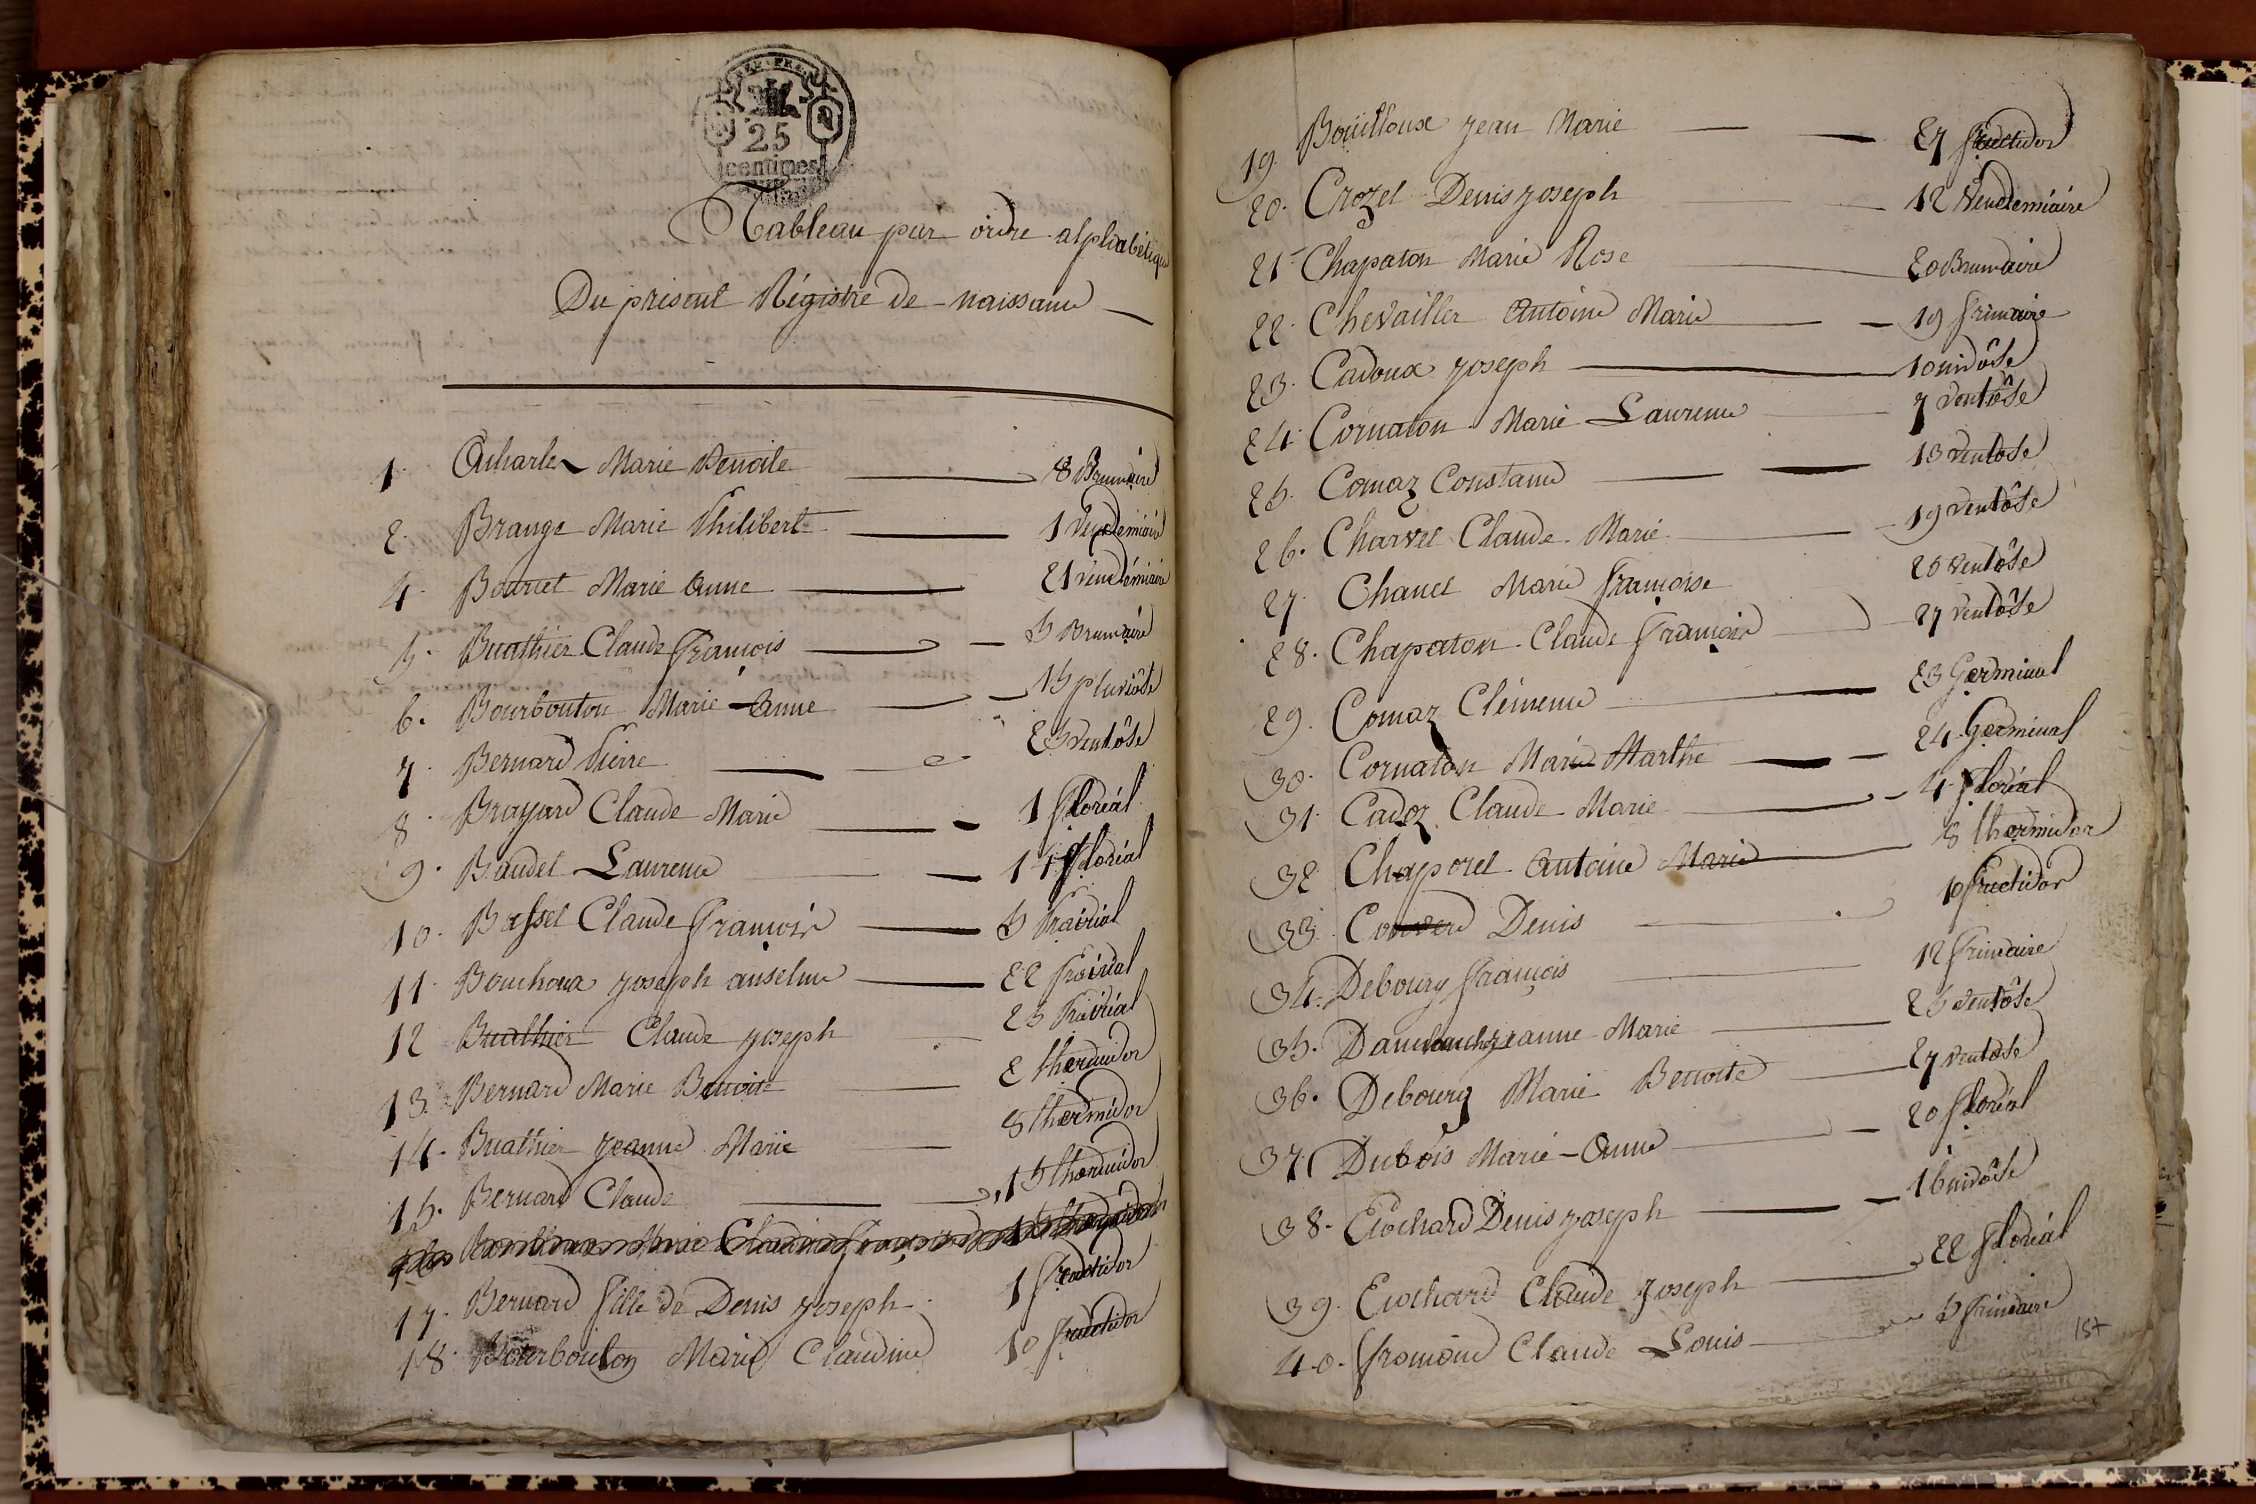 REP. FRA.
25
centimes
Tableau par ordre alphabétique
Du présent Régistre de naissance
1. Acharles Marie Benoite 8 Brumaire
2. Brange Marie Philibert 1 Vendemiaire
4. Bourcet Marie Anne 21 vendémiaire
5. Buathier Claude François 5 Brumaire
6. Bourbouton Marie Anne 15 pluviôse
7. Bernard Pierre 25 ventôse
8. Brayard Claude Marie 1 floréal
9. Baudet Laurence 11 floréal
10. Basset Claude François 5 Prairial
11. Bouchoux Joseph anselme 22 Prairial
12 Buathier Claude Joseph 25 Prairial
13. Bernard Marie Benoite 2 thermidor
14. Buathier Jeanne Marie 8 thermidor
15. Bernard Claude 15 thermidor
17. Bernard fille de Denis Joseph 1 fructidor
18. Bourbouton Marie Claudine 10 fructidor
19. Bouilloux Jean Marie 27 fructidor
20. Crozet Denis Joseph 12 Vendemiaire
21. Chapaton Marie Rose 20 Brumaire
22. Chevailler Antoine Marie 19 frimaire
23. Cadoux Joseph 10 nivôse
24. Cornaton Marie Laurence 7 ventôse
25. Comaz Constance 13 ventôse
26. Charvet Claude Marie 19 ventôse
27. Chanel Marie françoise 25 ventôse
28. Chapaton Claude françois 27 ventôse
29. Comaz Clémence 23 Germinal
30. Cornaton Marie Marthe 24 Germinal
31. Cadoz Claude Marie 4 floréal
32 Chaporel Antoine Marie 8 thermidor
33. Convert Denis 10 fructidor
34. Debourg françois 12 frimaire
35. Jeanne Marie 25 ventôse
36. Debourg Marie Benoite 27 ventose
37. Dubois Marie Anne 20 floréal
38. Cochard Denis Joseph 16 nivôse
39. Cochard Claude Joseph 22 floréal
40. fromoin Claude Louis 5 frimaire